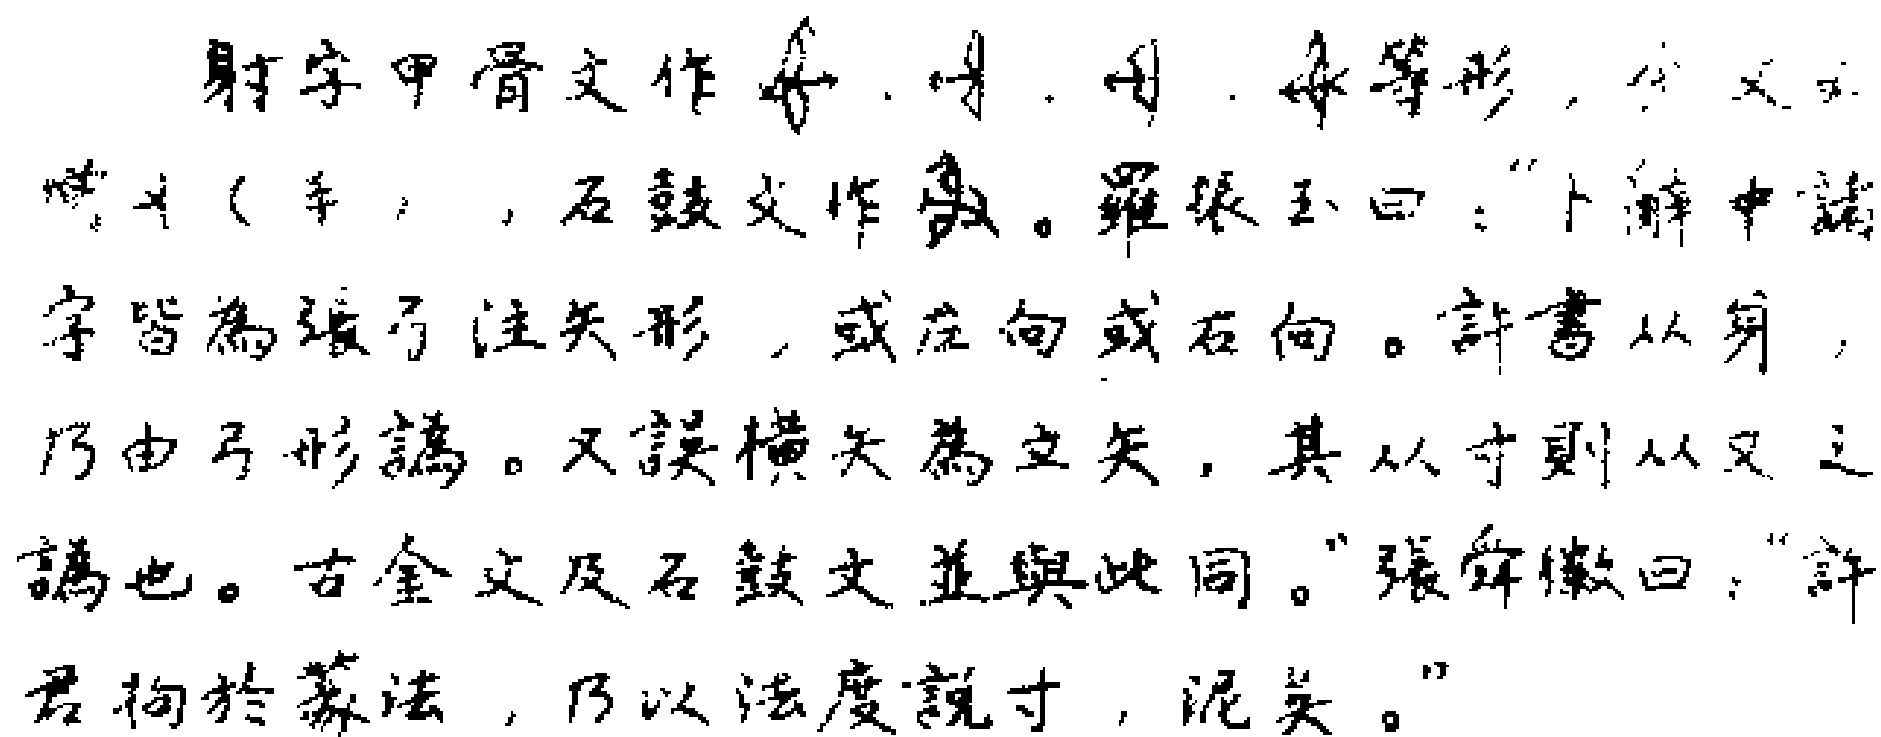 射字甲骨文作、、、等形,
(手),石鼓文作。羅振玉曰:“卜辭中諸
字皆為張弓注矢形,或左向或右向。許書从身,
乃由弓形譌。又誤橫矢為立矢,其从寸則从又之
譌也。古金文及石鼓文並與此同。”張舜徽曰:“許
君拘於篆法,乃以法度說寸,泥矣。”